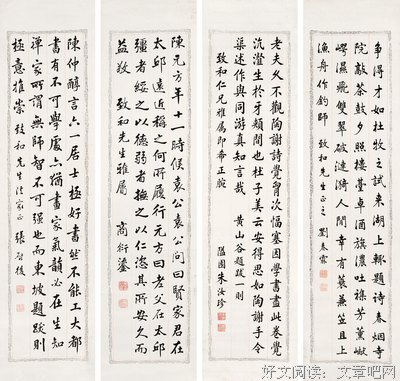 爭得才如杜牧之試來湖上輒題詩春烟寺
院敲茶鼓夕照樓臺卓酒旗濃吐雜芳薰巘
崿濕飛雙翠破漣漪人間幸有蓑兼笠且上
漁舟作釣師 致和先生正之 劉春霖
老夫久不觀陶謝詩覺胷次愊塞因學書盡此卷覺
沆瀣生於牙頰間也杜子美云安得思如陶謝手令
渠述作與同遊真知言哉 黃山谷題跋一則
致和仁兄雅屬即希正腕 隘園朱汝珍
陳元方年十一時候袁公袁公問曰賢家君在
太邱遠近稱之何所履行元方曰老父在太邱
彊者綏之以德弱者撫之以仁恣其所安久而
益敬 致和先生雅屬 商衍鎏
陳仲醇言六一居士極好書然不能工大都
書有不可學處亦猶畫家氣韻必在生知
禪家所謂無師智不可强也而東坡題跋則
極意推崇 致和先生法家正 張啓後
好文阅读：文章吧网